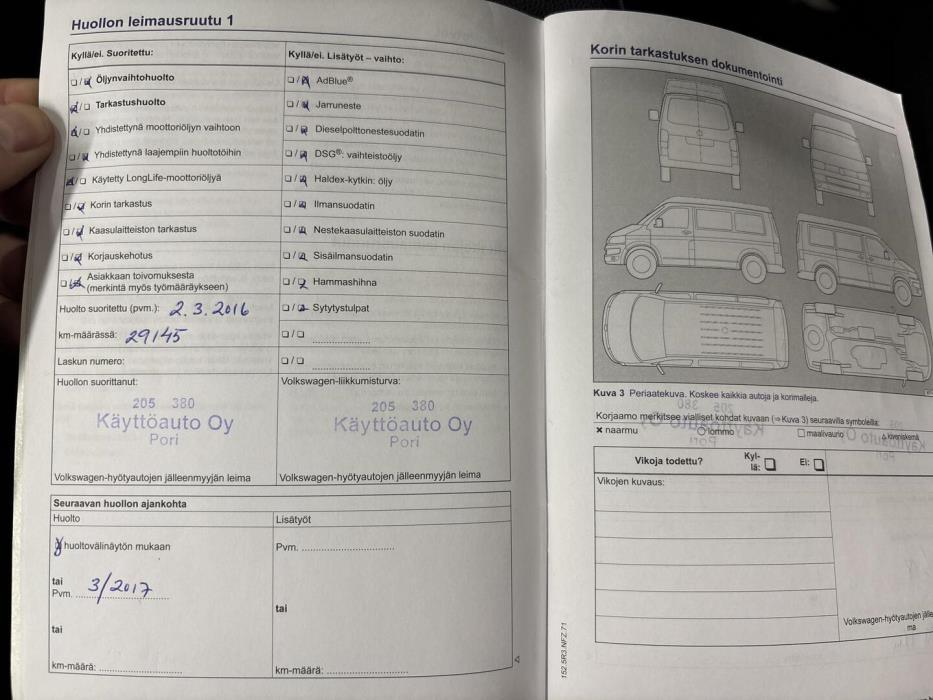 Huollon leimausruutu 1
Kyllä/ei. Suoritettu:
Öljynvaihtohuolto
Tarkastushuolto
Yhdistettynä moottoriöljyn vaihtoon
Yhdistettynä laajempiin huoltotöihin
Käytetty LongLife-moottoriöljyä
Korin tarkastus
Kaasulaitteiston tarkastus
Korjauskehotus
Asiakkaan toivomuksesta
(merkintä myös työmääräykseen)
Huolto suoritettu (pvm.): 2.3.2016
km-määrässä: 29145
Laskun numero:
Huollon suorittanut:
205 380
Käyttöauto Oy
Pori
Volkswagen-hyötyautojen jälleenmyyjän leima
Kyllä/ei. Lisätyöt – vaihto:
AdBlue®
Jarruneste
Dieselpolttonestesuodatin
DSG®: vaihteistoöljy
Haldex-kytkin: öljy
Ilmansuodatin
Nestekaasulaitteiston suodatin
Sisäilmansuodatin
Hammashihna
Sytytystulpat
Volkswagen-liikkumisturva:
205 380
Käyttöauto Oy
Pori
Volkswagen-hyötyautojen jälleenmyyjän leima
Seuraavan huollon ajankohta
Huolto
huoltovälinäytön mukaan
tai
Pvm. 3/2017
tai
km-määrä:
Lisätyöt
Pvm.
tai
km-määrä:
Korin tarkastuksen dokumentointi
Kuva 3 Periaatekuva. Koskee kaikkia autoja ja korimalleja.
Korjaamo merkitsee vialliset kohdat kuvaan (⇒ Kuva 3) seuraavilla symboleilla:
× naarmu
lommo
maalivaurio
kiveniskemä
Vikoja todettu?
Kyl-
lä:
Ei:
Vikojen kuvaus:
Volkswagen-hyötyautojen jälle
ma
152.5R3.NFZ.71